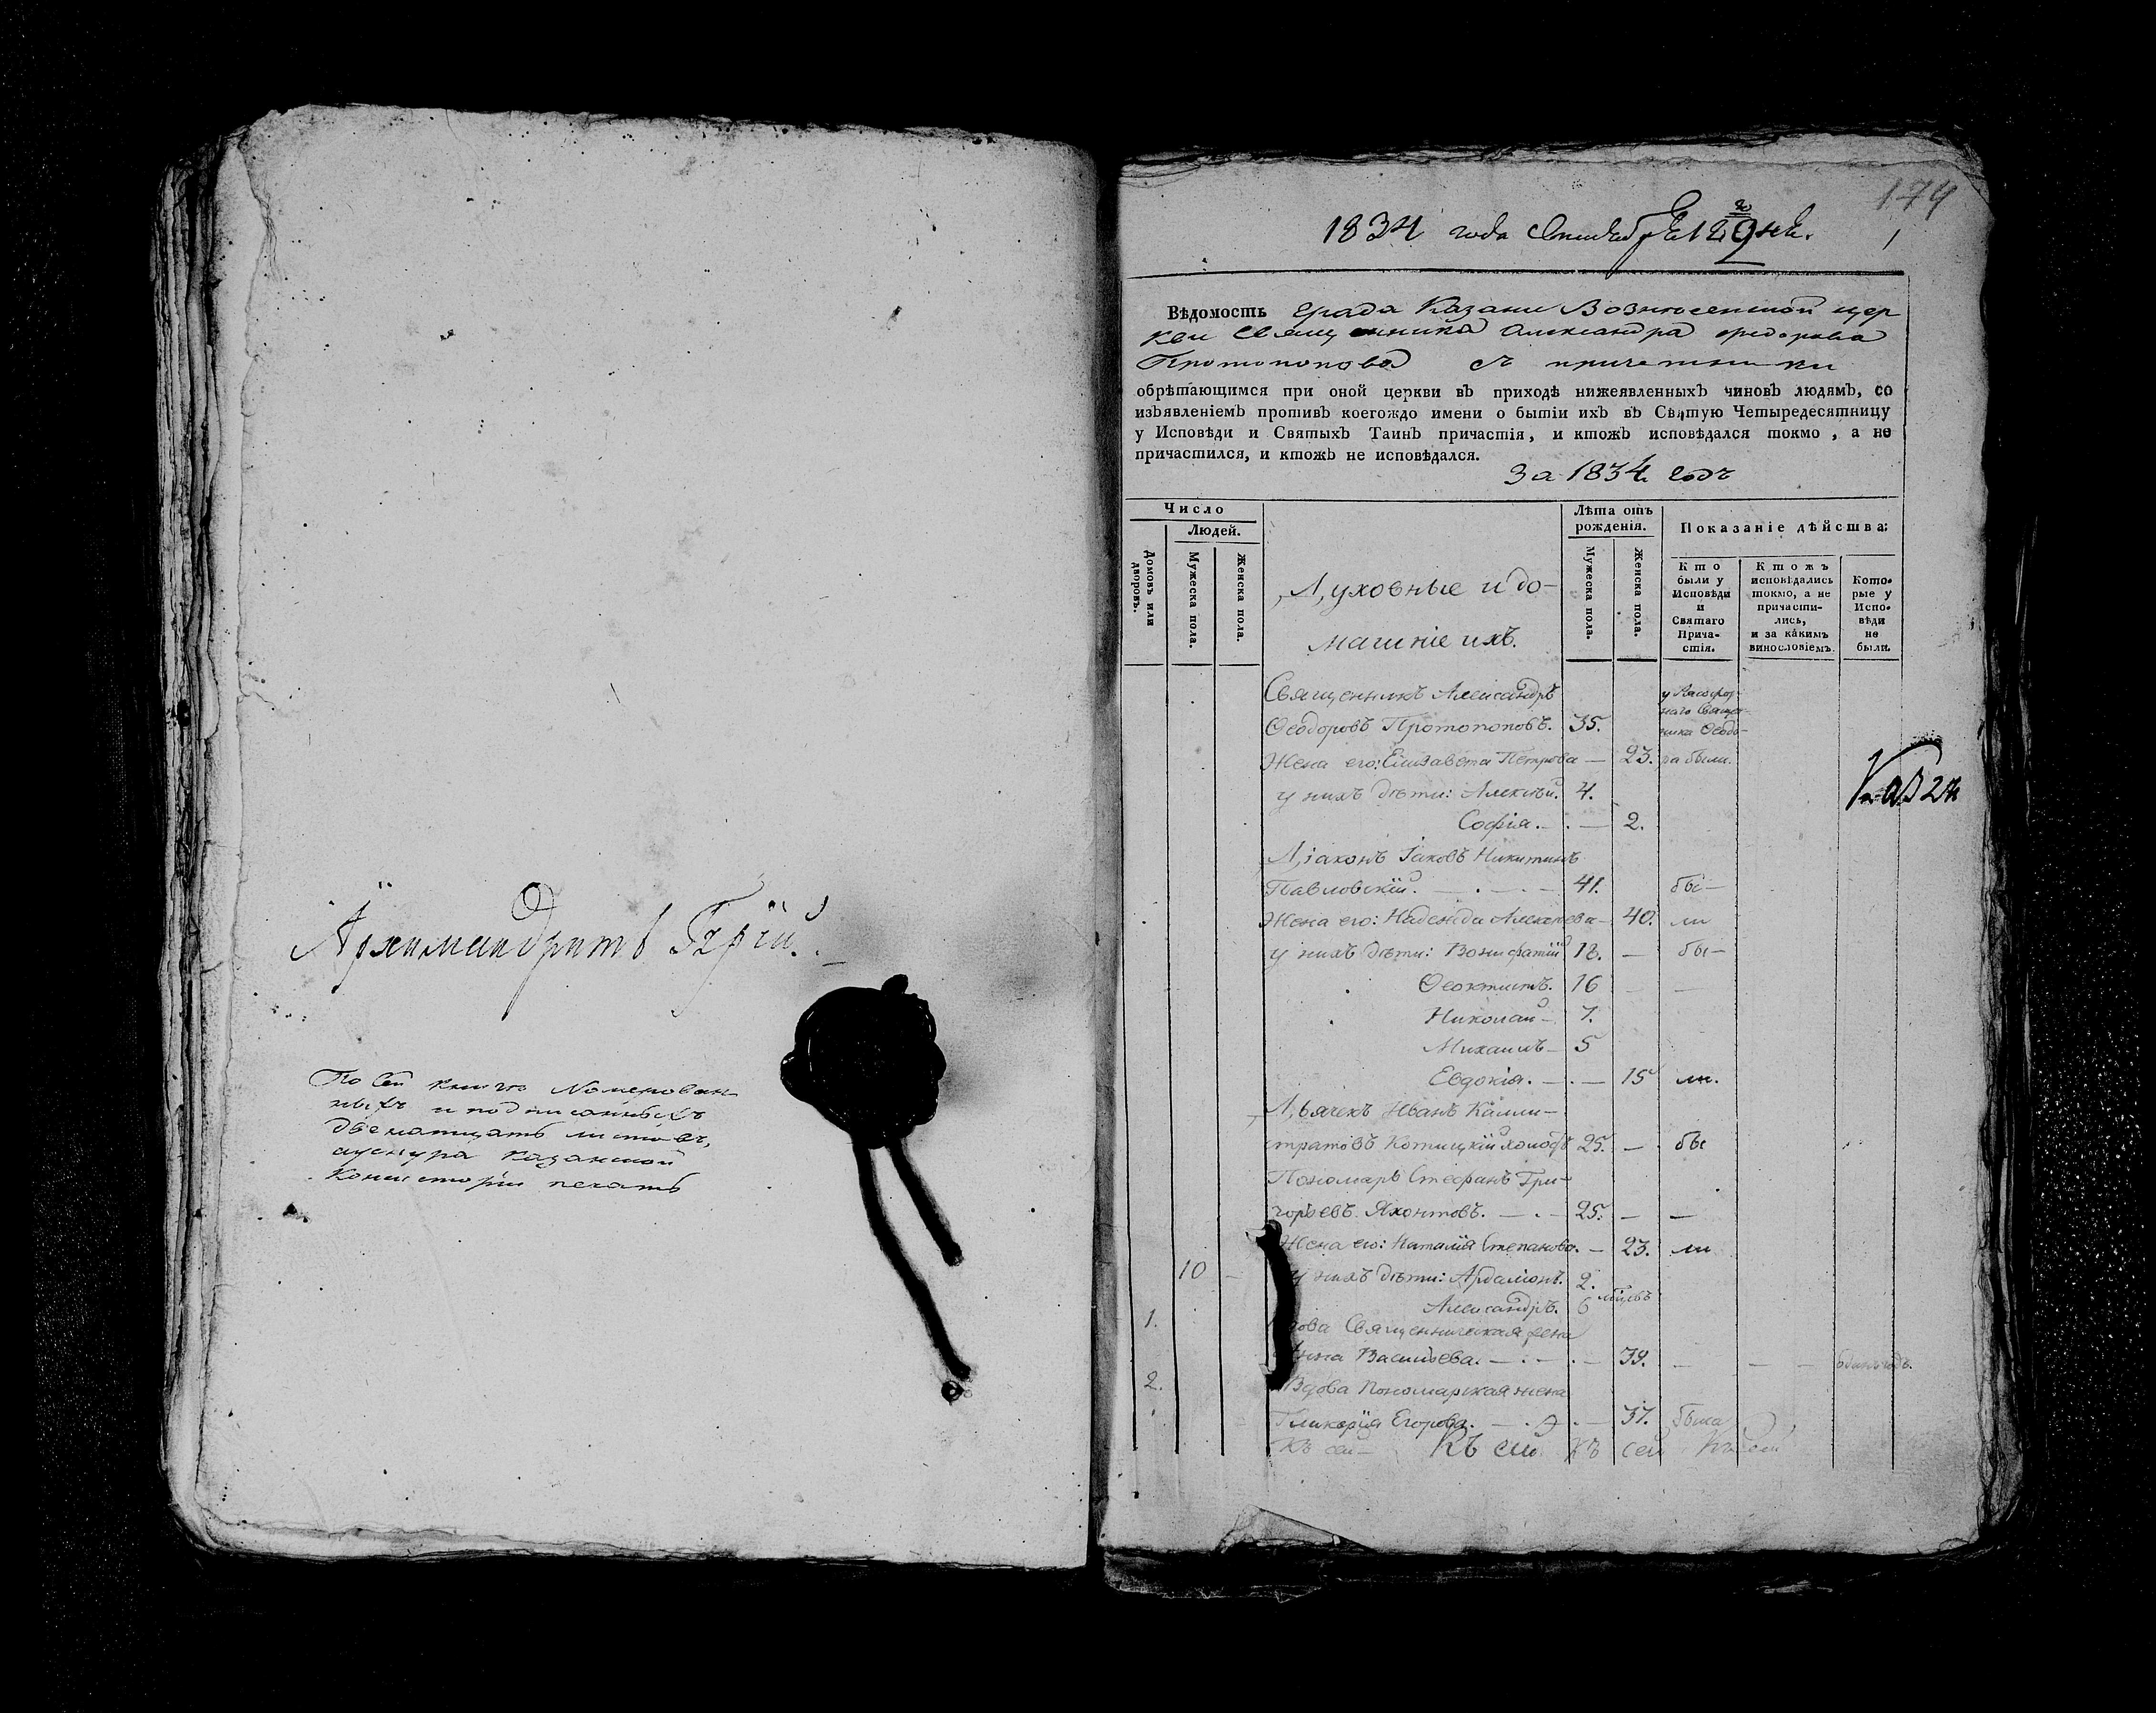 Архимандритъ Гурій.
По сей книгѣ номерован-
ныхъ и подписанныхъ
двенатцать листовъ,
а у снура Казанской
Консисторіи печать
174
1834 года Октября 29 дня.
1
Вѣдомость града Казани Вознесенской цер
кви Священника Александра Федорова
Протопопова съ причетники
обрѣтающимся при оной церкви въ приходѣ нижеявленныхъ чиновъ людямъ, со
изъявленіемъ противъ коегождо имени о бытіи ихъ въ Святую Четыредесятницу
у Исповѣди и Святыхъ Таинъ причастія, и ктожъ исповѣдался токмо, а не
причастился, и ктожъ не исповѣдался.
За 1834 годъ
Число
Людей.
Домовъ или дворовъ.
Мужеска пола.
Женска пола.
Духовные и до-
машніе ихъ.
Лѣта отъ рожденія.
Мужеска пола.
Женска пола.
Показаніе дѣйства:
Кто были у Исповѣди и Святаго Прича-стія.
Ктожъ исповѣдались токмо, а не причасти-лись, и за какимъ винословіемъ.
Кото-рые у Испо-вѣди не были.
Священникъ Александръ
Ѳеодоровъ Протопоповъ. 35.
Жена его: Елизавета Петрова — 23. были.
у нихъ дѣти: Алексѣй. 4.
Софія. — 2.
Діаконъ Іаковъ Никитинъ
Павловскій. — 41. бы—
Жена его: Надежда Алексѣева — 40. ли
у нихъ дѣти: Вонифатій 18. — бы—
Ѳеоктистъ. 16
Николай — 7.
Михаилъ — 5
Евдокія. — 15 ли.
Дьячекъ Иванъ Калли-
стратовъ Котицкій холостъ 25. — бы
Пономарь Стефанъ Гри-
горьевъ Яхонтовъ. — 25. — —
Жена его: Наталія Степанова. — 23. ли
10 у нихъ дѣти: Ардаліонъ. 2.
Александръ. 6 мѣсяцевъ
1. Вдова Священническая жена
Анна Васильева. — 39. — —
2. Вдова Пономарская жена
Гликерія Егорова. — 37. была
Къ сей Къ сей Къ сей Къ сей